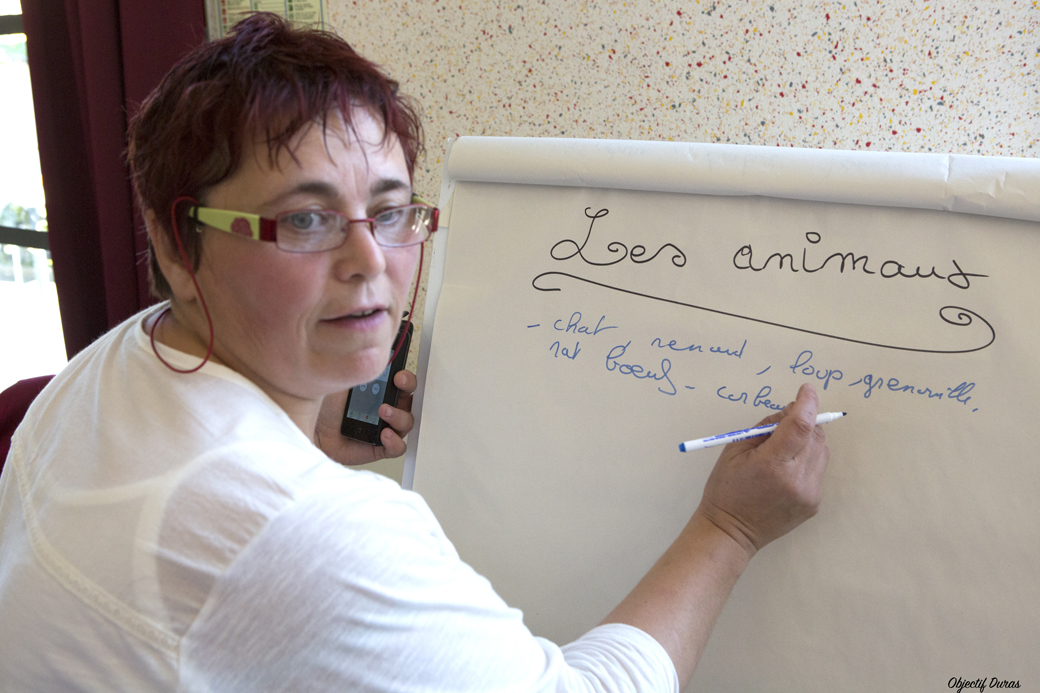 Les animaux
- chat, renard, loup, grenouille,
rat boeuf - corbeau
Objectif Duras